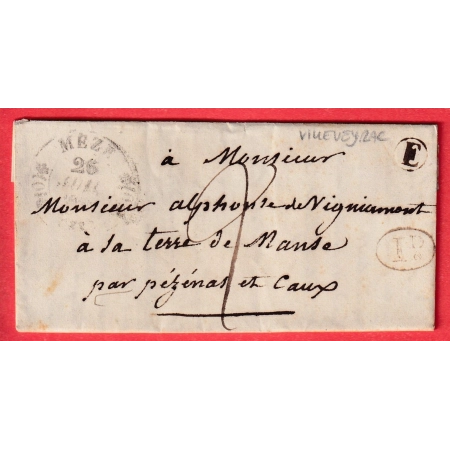 VILLEVEYRAC
MEZE
26
E
à Monsieur
Monsieur alphonse de Vigniamont
à la terre de Manse
par pézénas et Caux
2
1 D